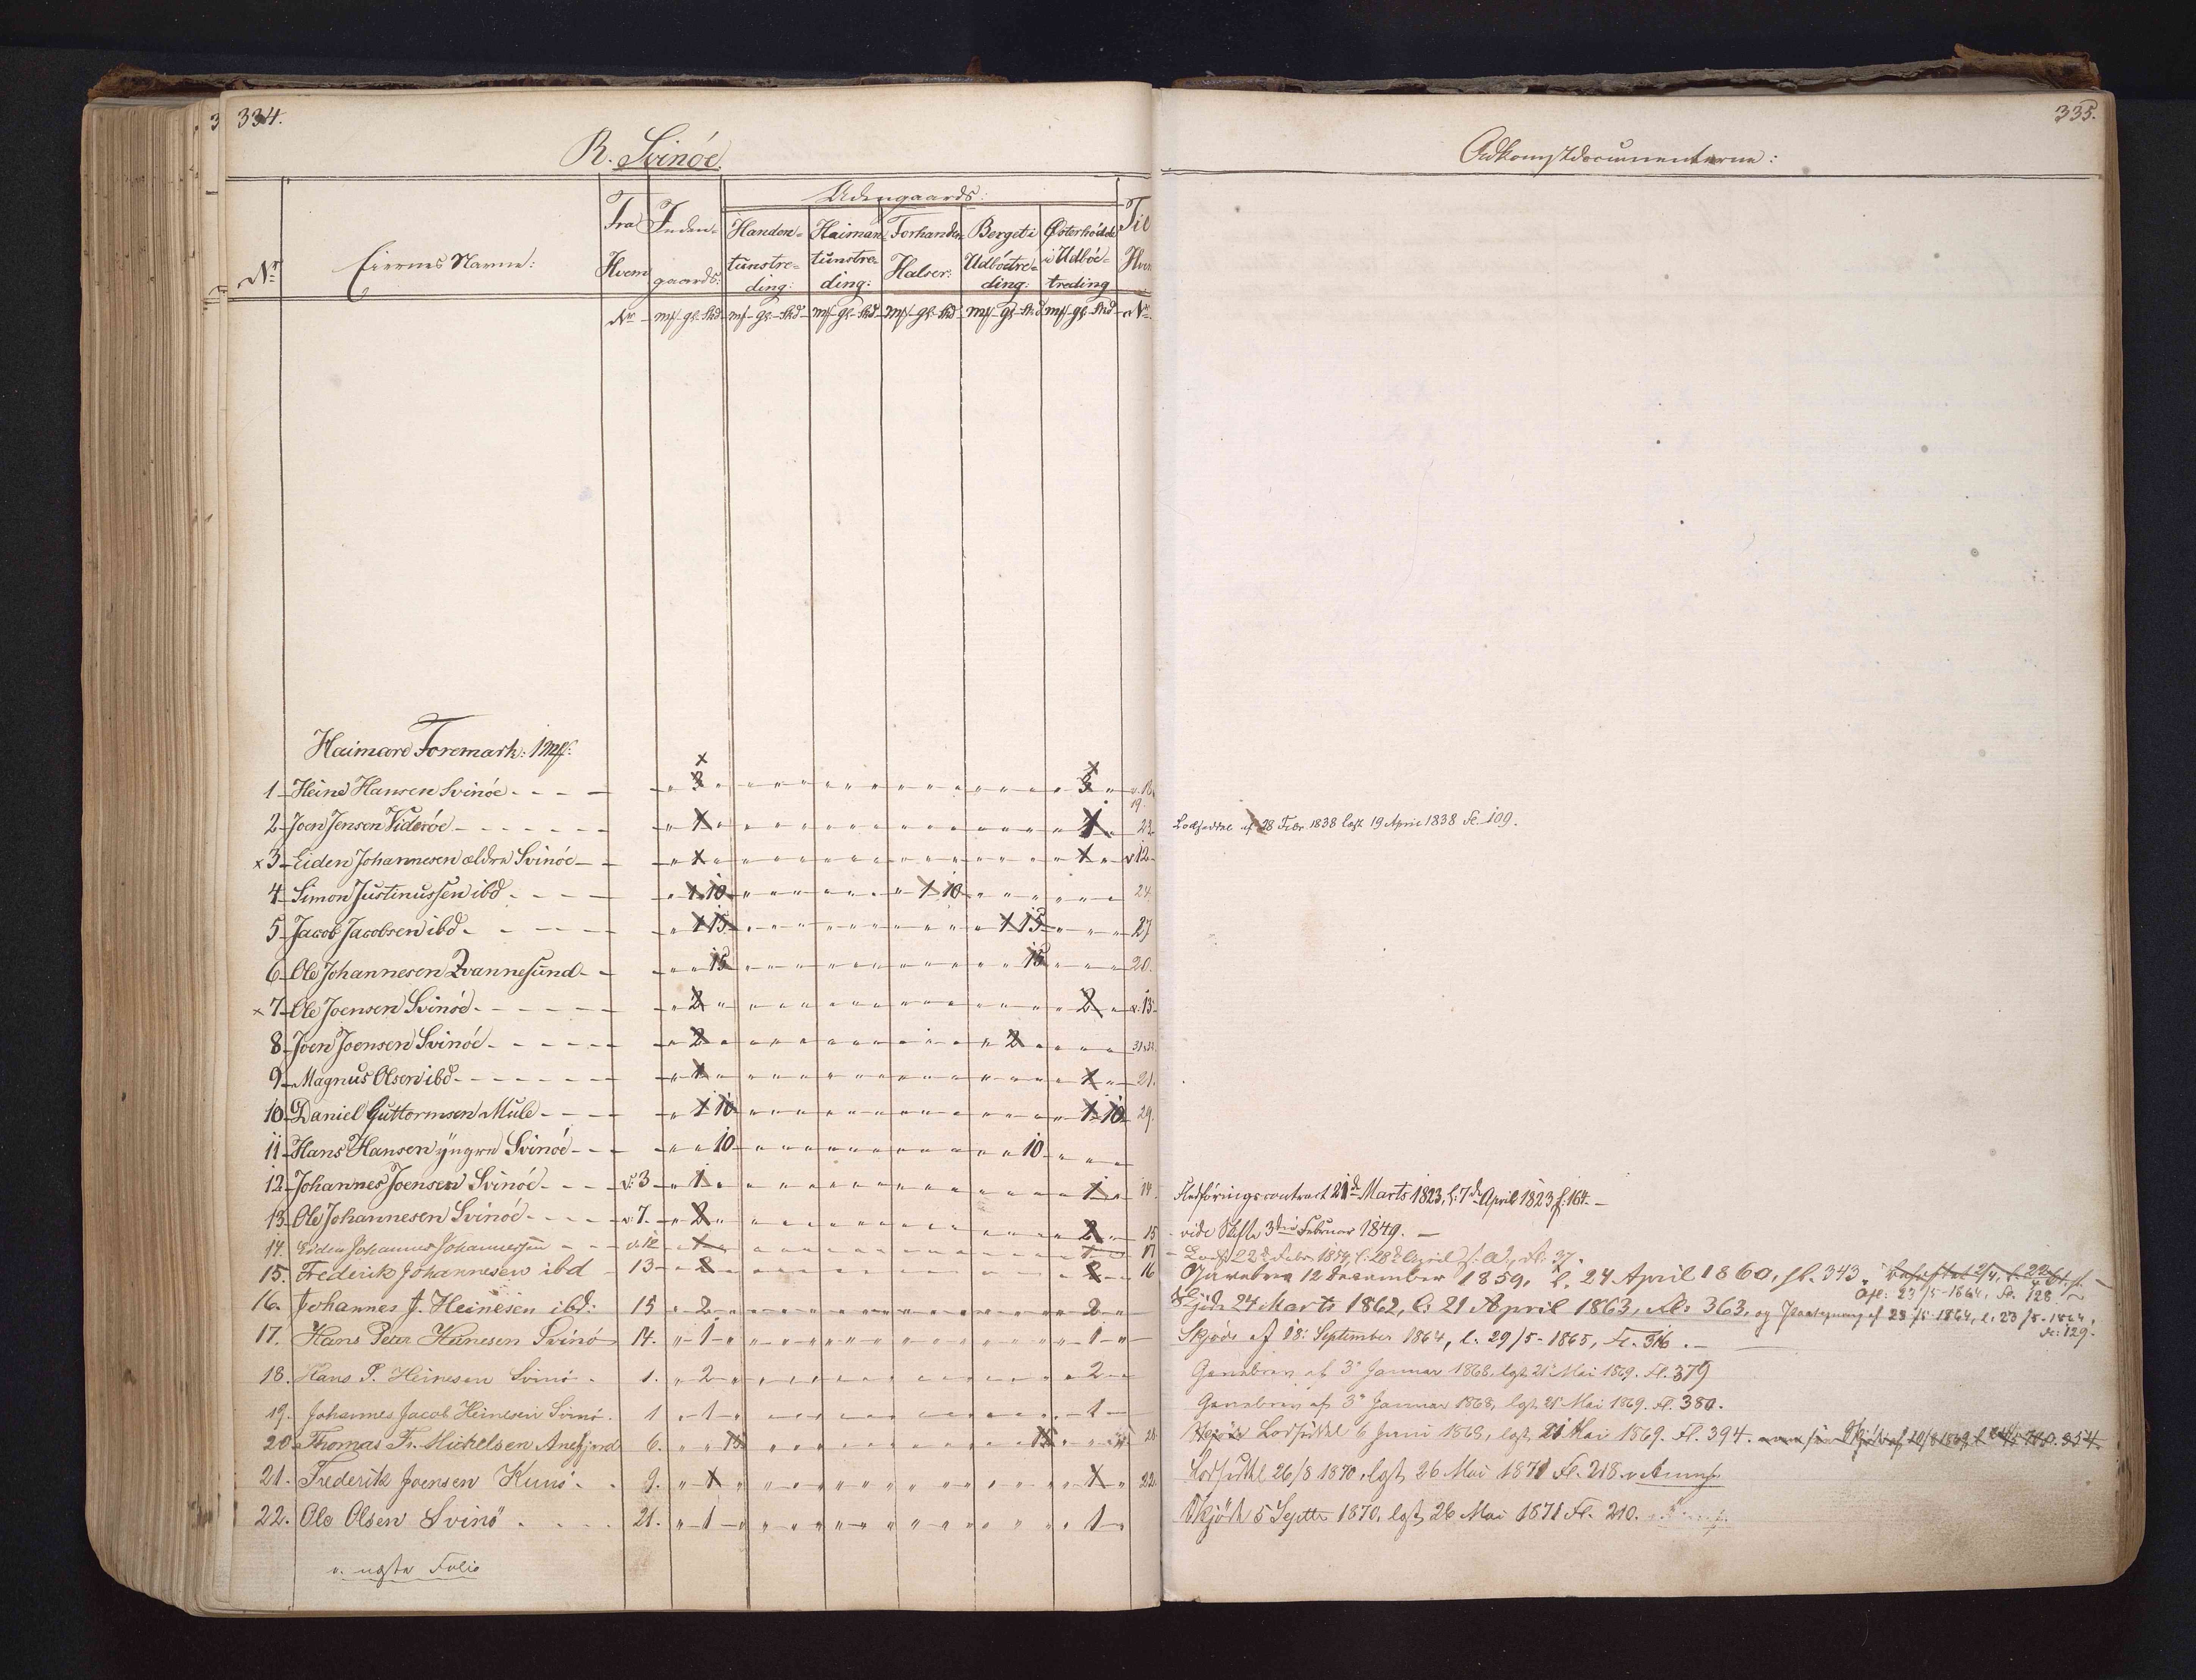 334.
R. Svinöe.
Udengaards:
Nr. Eiernes Navne: Fra Hvem Inden-gaards: Handen-tunstre-ding: Haiman-tunstre-ding: Forhanden Halser: Bergeti Udböetre-ding: Österhövde i Udböe-treding Til
Nr. mk gl. Skd mk gl. Skd mk gl. Skd mk gl. Skd mk gl. Skd mk gl. Skd Nr.
Haimare Foremark: 1 mk.
1 Heine Hansen Svinöe 3 3 18. 19.
2 Joen Jensen Videröe 1 1 23
x 3 Eiden Johannesen ældre Svinöe 1 1 v 12
4 Simon Justinussen ibd 1 10 1 10 24.
5 Jacob Jacobsen ibd 1 15 1 15 27
6 Ole Johannesen Qvannesund 15 15 20.
x 7 Ole Joensen Svinöe 2 2 v. 13
8 Joen Joensen Svinöe 2 2
9 Magnus Olsen ibd 1 1 21.
10 Daniel Guttormsen Mule 1 10 1 10 29.
11 Hans Hansen yngre Svinöe 10 10
12 Johannes Joensen Svinöe v. 3 1 1 14.
13 Ole Johannesen Svinöe v. 7. 2 2 15
14. Eiden Johannes Johannessen v. 12 1 1 17
15. Frederik Johannesen ibd 13 2 2 16
16. Johannes J. Heinesen ibd: 15 2 2
17. Hans Peter Heinesen Svinö 14. 1 1
18. Hans P. Heinesen Svinö 1. 2 2
19. Johannes Jacob Heinesen Svinö 1 1 1
20 Thomas Fr. Michelsen Anefjord 6. 15 15 28
21. Frederik Joensen Kunö 9. 1 1 22
22. Ole Olsen Svinö 21. 1 1
v. næste Folio
335.
Adkomstdocumenterne:
Lodseddel af 28 Febr 1838 læst 19 April 1838 Fo. 109.
Flodföringscontract 21de Marts 1823, l. 7de April 1823 f. 164.
vide Skifte 3die Februar 1849.
22de Febr. 1859, l. 28de April s. A., Fo. 37.
Gavebrev 12 December 1859, l. 24 April 1860, fl. 343.
Afl: 23/5-1864, Fo. 128
Skjöde 24 Marts 1862, l: 21 April 1863, Fl: 363, og Paategning af 23/5 1864, l. 23/5-1864, Fo: 129.
Skjöde af 18: September 1864, l. 29/5-1865, Fl. 316.
Gavebrev af 3e Januar 1868, lgt 21e Mai 1869. Fl. 379
Gavebrev af 3e Januar 1868, lgt 21e Mai 1869. Fl. 380.
Lodseddel 6 Juni 1868, lgt 21 Mai 1869. Fl. 394.
Lodseddel 26/8 1870, lgt 26 Mai 1871 Fl. 218.
Skjöde 5 Septbr 1870, lgt 26 Mai 1871 Fl. 210.